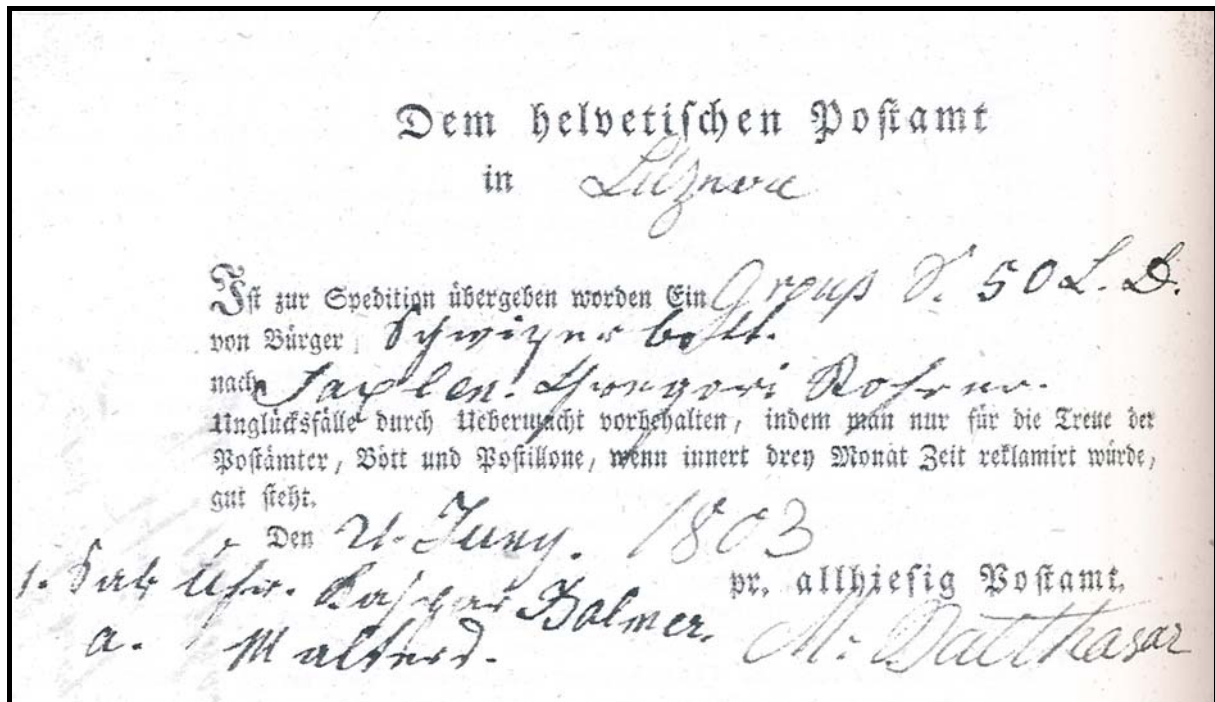 Dem helvetischen Postamt
in Luzern
Ist zur Spedition übergeben worden Ein Group S. 50 L. D.
von Bürger Schwizer bott.
nach Saxlen. Gregori Rohrer.
Unglücksfälle durch Uebermacht vorbehalten, indem man nur für die Treue der
Postämter, Bött und Postillone, wenn innert drey Monat Zeit reklamirt würde,
gut steht.
Den 21. Juny. 1803
pr. allhiesig Postamt.
1. Uhr. Kaspar Bolmer.
a. Malters.
M. Balthasar